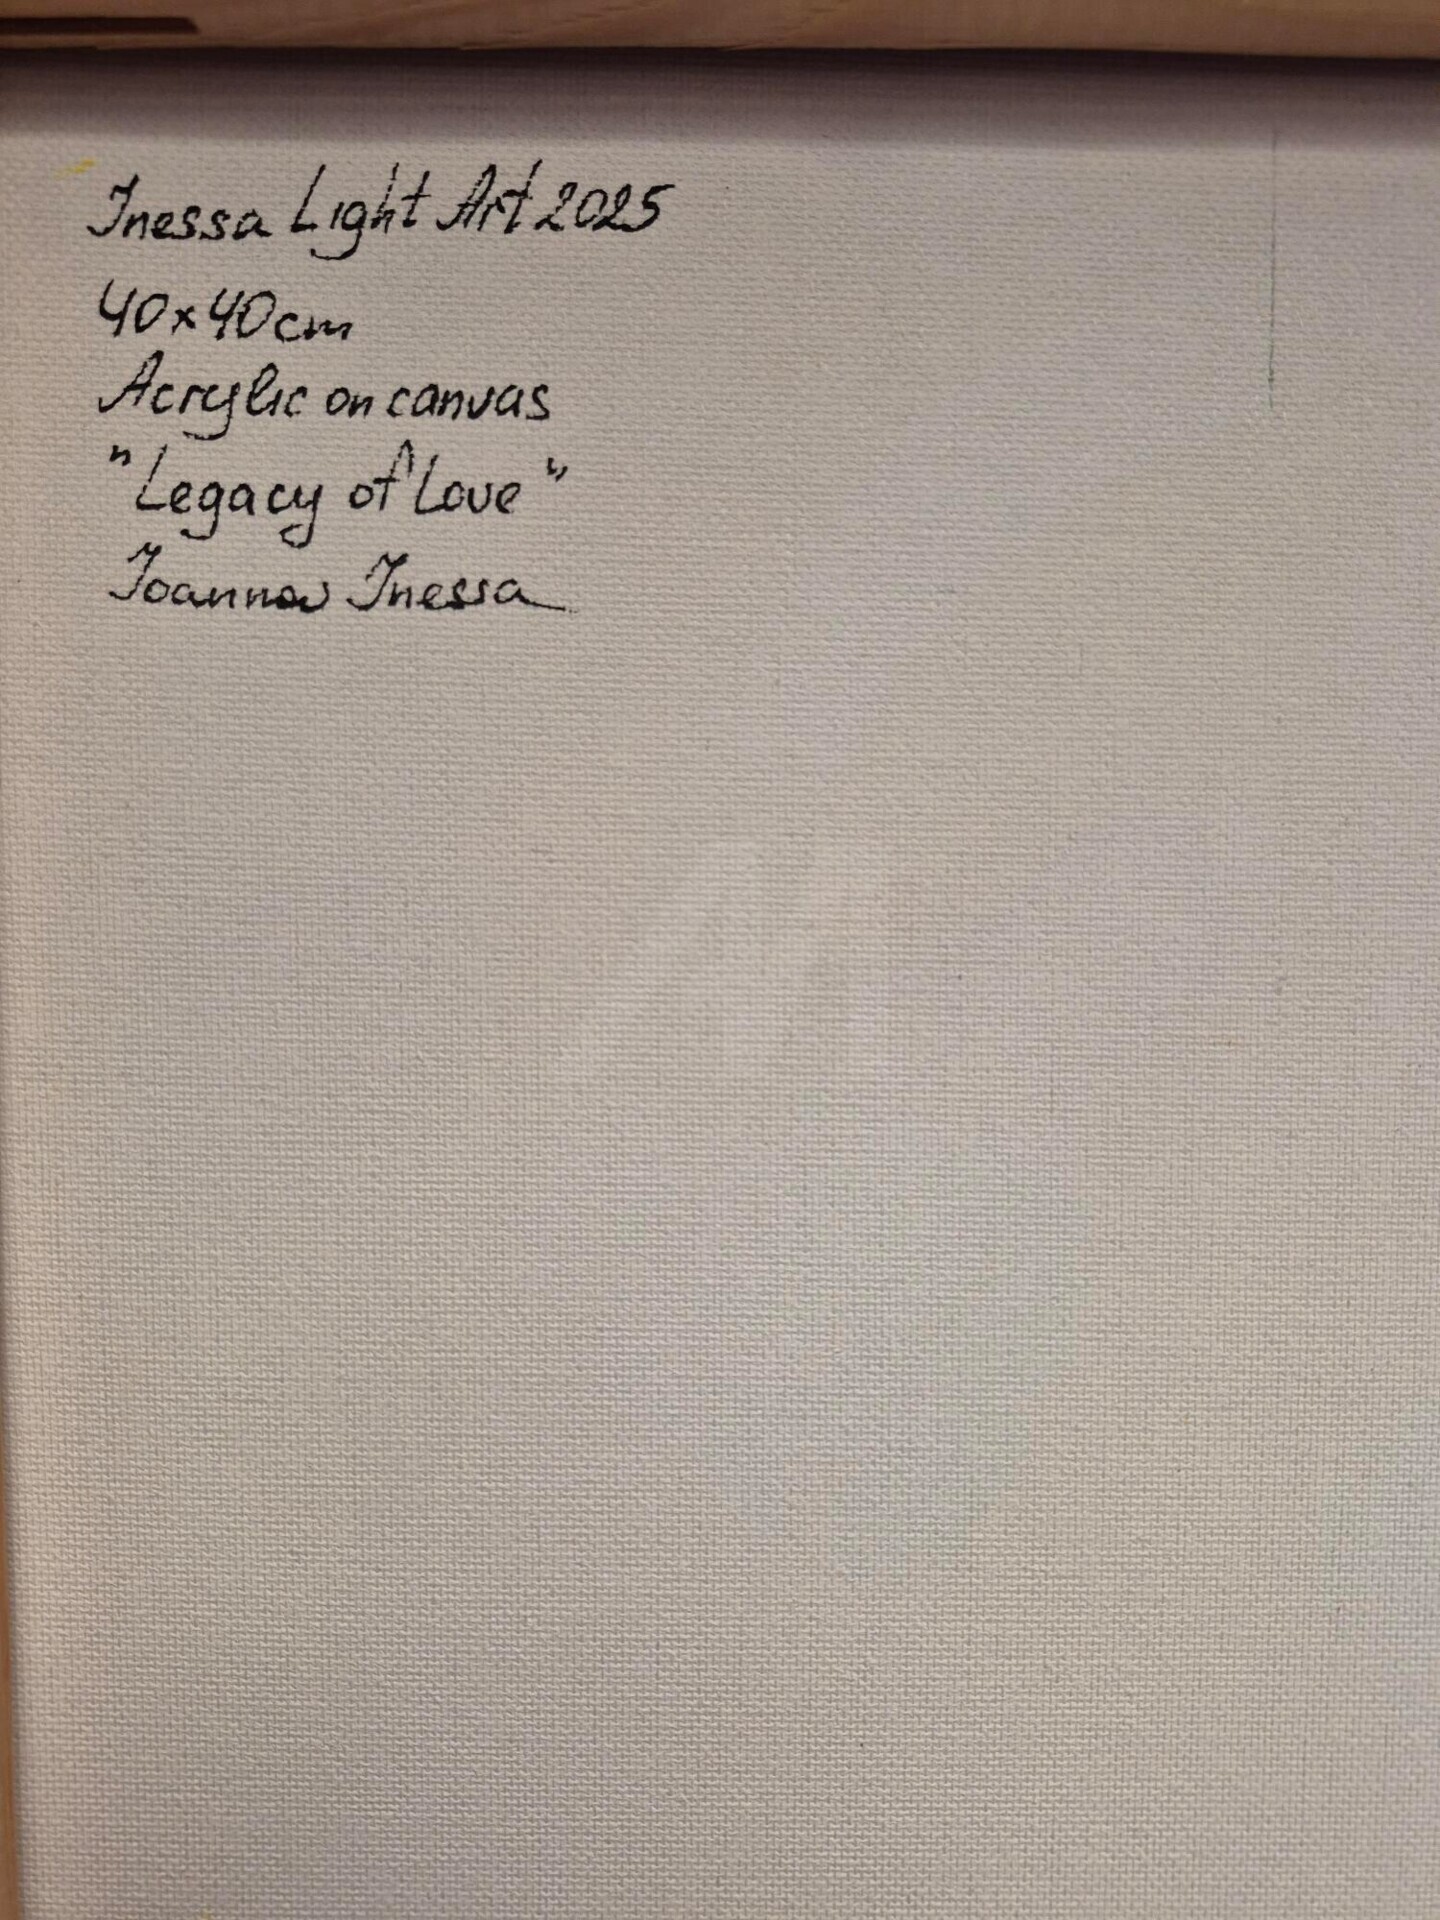 Inessa Light Art 2025
40x40cm
Acrylic on canvas
"Legacy of Love"
Inessa